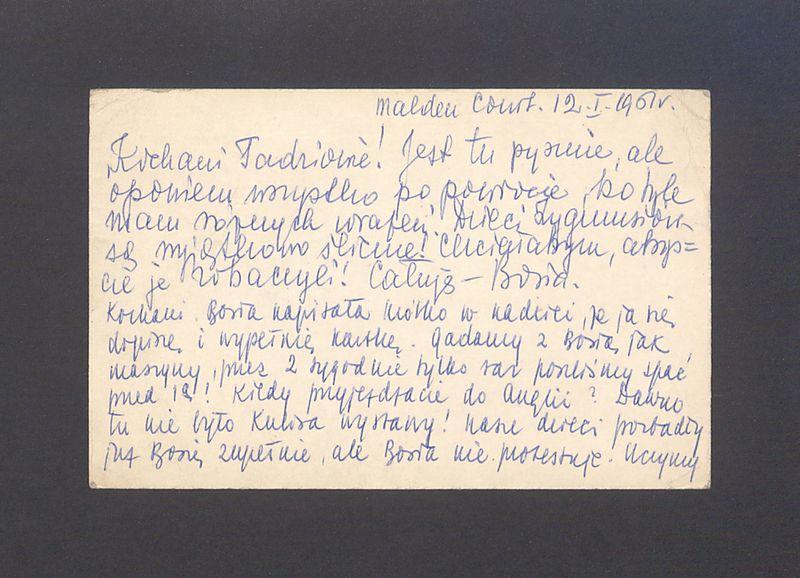 Malden Court. 12.I.1961r.
Kochani Tadziowie! Jest tu pysznie, ale
opowiem wszystko po powrocie, bo tyle
mam różnych wrażeń. Dzieci Zygmuntów
są wyjątkowo śliczne! Chciałabym, abyś=
cie je zobaczyli! Całuję – Bosia.
Kochani. Bosia napisała krótko w nadziei, że ja się
dopiszę i wypełnię kartkę. Gadamy z Bosią jak
maszyny, przez 2 tygodnie tylko raz poszliśmy spać
przed 12! Kiedy przyjeżdżacie do Anglii? Dawno
tu nie było wystawy! Nasze dzieci
już Bosię zupełnie, ale Bosia nie protestuje. Uczymy